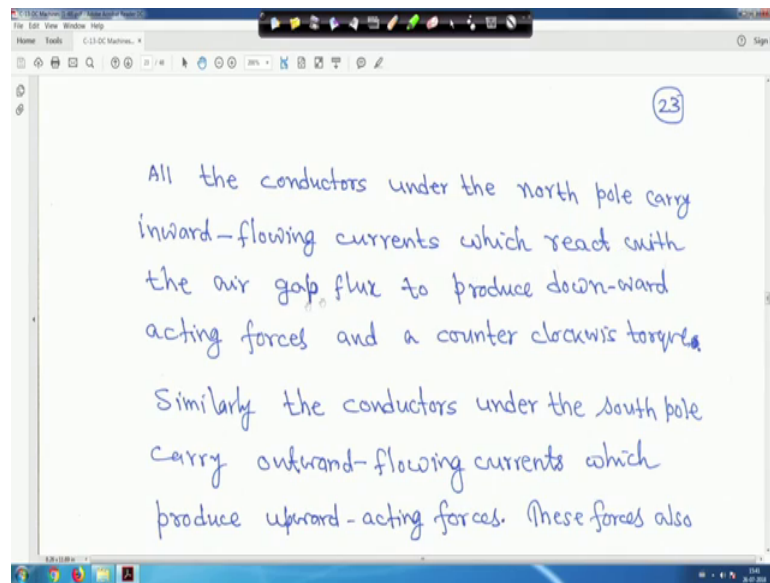 C-13-DC Machines (1-46).pdf - Adobe Acrobat Reader DC
File Edit View Window Help
Home Tools C-13-DC Machines... ×
Sign
23 / 46
23
All the conductors under the north pole carry
inward-flowing currents which react with
the air gap flux to produce down-ward
acting forces and a counter clockwis torque.
Similarly the conductors under the south pole
carry outward-flowing currents which
produce upward-acting forces. These forces also